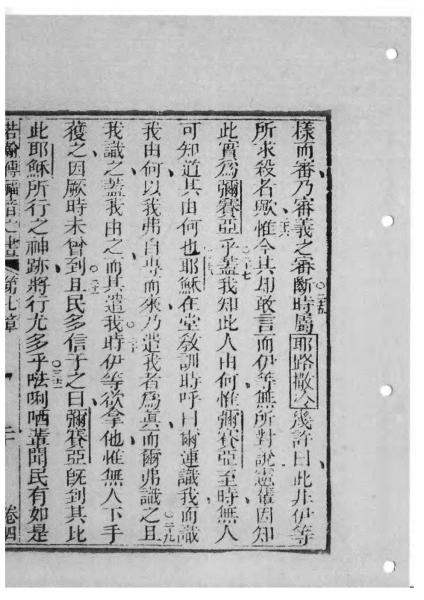 樣而審乃審義之審斷時屬耶路撒冷幾許曰此非伊等
所求殺者歟惟今其用敢言而伊等無所對說憲輩因知
此實為彌賽亞乎蓋我知此人由何惟彌賽亞至時無人
可知道其由何也耶穌在堂教訓時呼曰爾連識我而識
我由何以我弗自專而來乃遣我者為真而爾弗識之且
我識之蓋我由之而其遣我時伊等欲拿他惟無人下手
獲之因厥時未曾到且民多信子之曰彌賽亞既到其比
此耶穌所行之神跡將行尤多乎𠵽唎哂輩聞民有如是
若翰傳福音之書 第七章 二 卷四